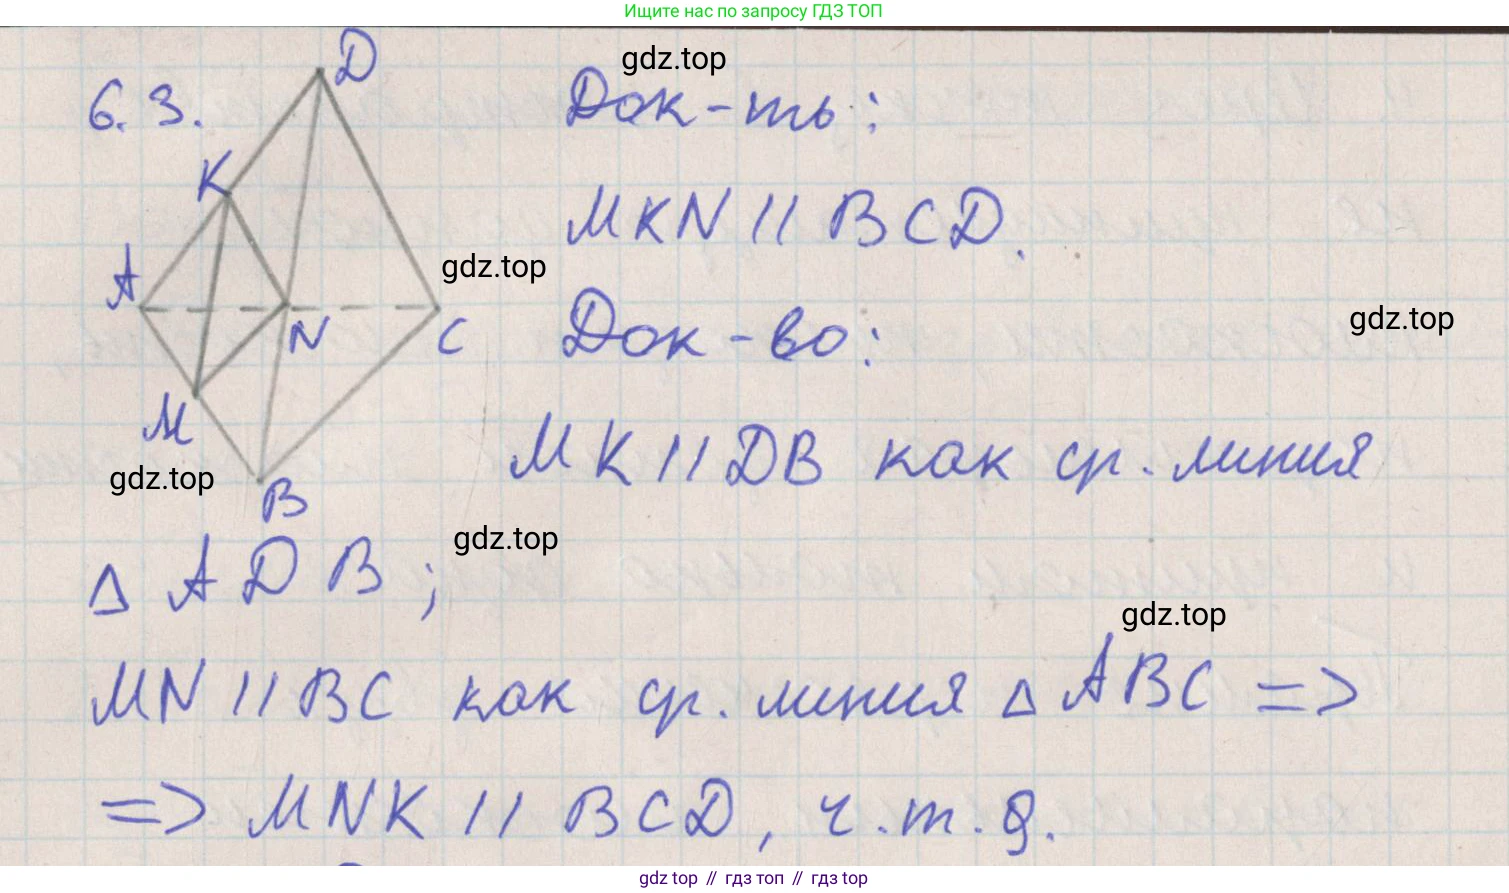 Ищите нас по запросу ГДЗ ТОП
6.3.
D
K
A
N
C
M
B
gdz.top
Док-ть:
MKN || BCD.
gdz.top
gdz.top
Док-во:
MK || DB как ср. линия
gdz.top
gdz.top
Δ ADB;
gdz.top
MN || BC как ср. линия Δ ABC =>
=> MNK || BCD, ч.т.д.
gdz top // гдз топ // гдз top